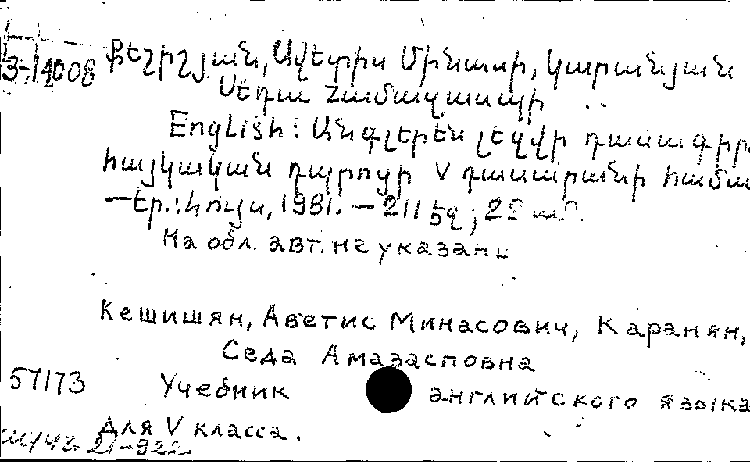 3-14008 Քեշիշյան, Ավետիս Մինասի, Կարանյան
Սեդա Համազասպի
English: Անգլերեն լեզվի դասագիրք
հայկական դպրոցի V դասարանի համար
—Եր.: Լույս, 1981. — 211 էջ; 22 սմ.
На обл. авт. не указаны
Кешишян, Аветис Минасович, Каранян,
Седа Амазасповна
57173 Учебник английского языка
для V класса.